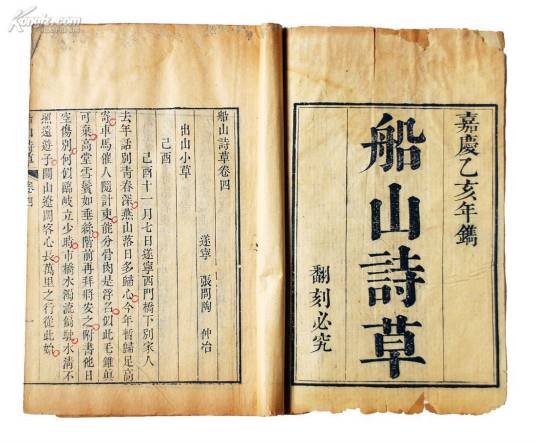 嘉慶乙亥年鐫
船山詩草
翻刻必究
船山詩草卷四
遂寧 張問陶 仲冶
出山小草
己酉
己酉十一月七日遂寧西門橋下別家人
去年話別青春深燕山落日多歸心今年暫歸足高
車馬催人隨計東能分骨肉是浮名似此毛錐真
可棄高堂雪鬢如垂絲階前再拜將安之附書他日
空傷別何似臨岐立少時市橋水濁流觴駛水清不
照遠遊子關山遼闊客心長萬里之行從此始
船山詩草
卷四
Kongfz.com